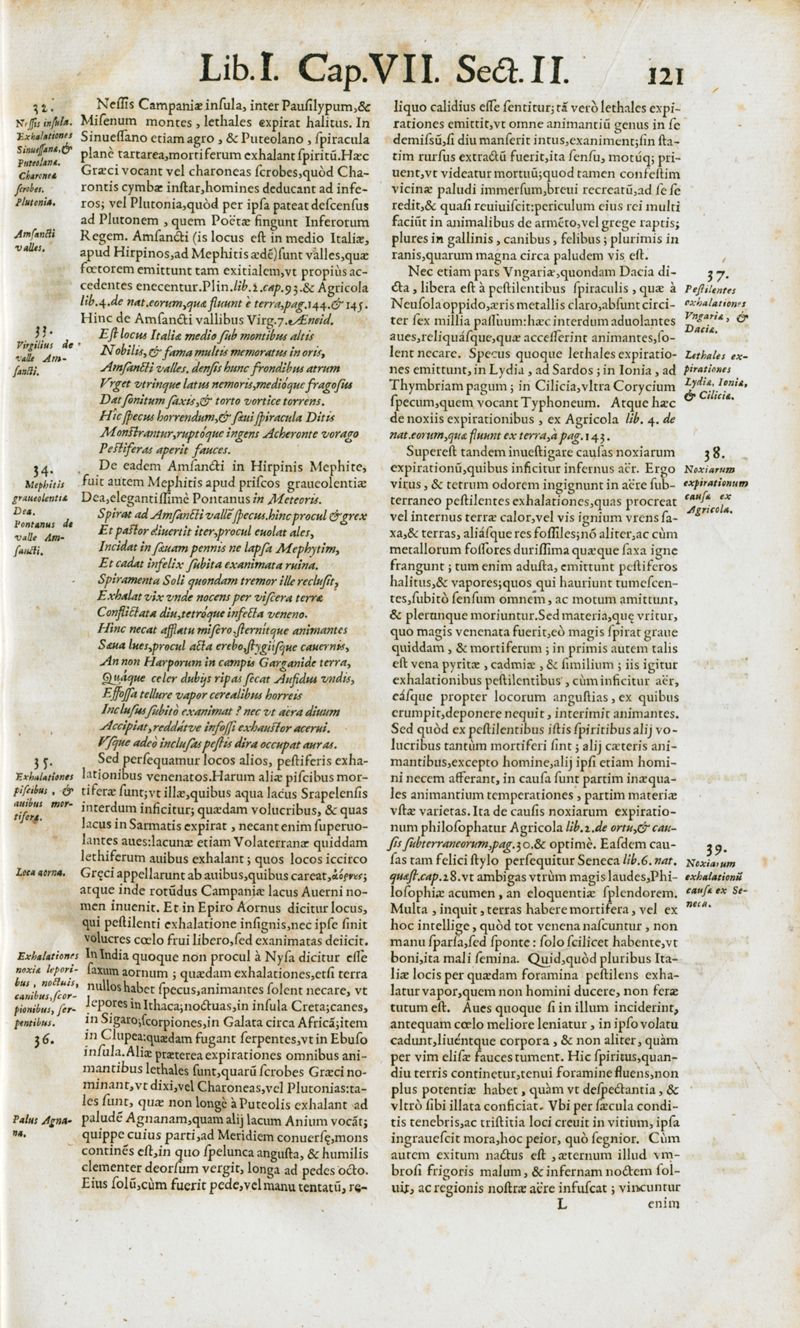 Lib. I. Cap. VII. Sect. II. 121
32.
Nessis insula.
Exhalationes
Sinuessanæ, &
Puteolanæ.
Charoneæ
scrobes.
Plutonia.
Amsancti
valles.
33.
Virgilius de
valle Am-
sancti.
34.
Mephitis
graueolentiæ
Dea.
Pontanus de
valle Am-
sancti.
35.
Exhalationes
piscibus, &
auibus mor-
tiferæ.
Loca aorna.
Exhalationes
noxiæ lepori-
bus, noctuis,
canibus, scor-
pionibus, ser-
pentibus.
36.
Palus Agna-
na.
Neſſis Campaniæ inſula, inter Pauſilypum, &
Miſenum montes, lethales expirat halitus. In
Sinueſſano etiam agro, & Puteolano, ſpiracula
planè tartarea, mortiferum exhalant ſpiritũ. Hæc
Græci vocant vel charoneas ſcrobes, quòd Cha-
rontis cymbæ inſtar, homines deducant ad infe-
ros; vel Plutonia, quòd per ipſa pateat deſcenſus
ad Plutonem, quem Poëtæ fingunt Inferorum
Regem. Amſancti (is locus eſt in medio Italiæ,
apud Hirpinos, ad Mephitis ædē) ſunt valles, quæ
fœtorem emittunt tam exitialem, vt propiùs ac-
cedentes enecentur. Plin. lib. 2. cap. 93. & Agricola
lib. 4. de nat. eorum, quæ fluunt è terra, pag. 144. & 145.
Hinc de Amſancti vallibus Virg. 7. Æneid.
Eſt locus Italiæ medio ſub montibus altis
Nobilis, & fama multis memoratus in oris,
Amſancti valles. denſis hunc frondibus atrum
Vrget vtrinque latus nemoris, medióque fragoſus
Dat ſonitum ſaxis, & torto vortice torrens.
Hic ſpecus horrendum, & ſæui ſpiracula Ditis
Monſtrantur, ruptóque ingens Acheronte vorago
Peſtiferas aperit fauces.
De eadem Amſancti in Hirpinis Mephite,
fuit autem Mephitis apud priſcos graueolentiæ
Dea, elegantiſſimè Pontanus in Meteoris.
Spirat ad Amſancti vallē ſpecus. hinc procul ô grex
Et paſtor diuertit iter, procul euolat ales,
Incidat in ſæuam pennis ne lapſa Mephytim,
Et cadat infelix ſubita exanimata ruina.
Spiramenta Soli quondam tremor ille recluſit,
Exhalat vix vnde nocens per viſcera terræ
Conflictata diu, tetróque infecta veneno.
Hinc necat afflatu miſero, ſternitque animantes
Sæua lues, procul acta erebo, ſtygiiſque cauernis,
An non Harporum in campis Garganide terra,
Quáque celer dubijs ripas ſecat Aufidus vndis,
Effoſſa tellure vapor cerealibus horreis
Incluſus ſubitò exanimat? nec vt aëra diuum
Accipiat, reddátve infoſſi exhauſtor acerui.
Vſque adeò incluſas peſtis dira occupat auras.
Sed perſequamur locos alios, peſtiferis exha-
lationibus venenatos. Harum aliæ piſcibus mor-
tiferæ ſunt; vt illæ, quibus aqua lacus Srapelenſis
interdum inficitur; quædam volucribus, & quas
lacus in Sarmatis expirat, necant enim ſuperuo-
lantes aues: lacunæ etiam Volaterranæ quiddam
lethiferum auibus exhalant; quos locos iccirco
Gręci appellarunt ab auibus, quibus careat, ἀόρνες;
atque inde rotũdus Campaniæ lacus Auerni no-
men inuenit. Et in Epiro Aornus dicitur locus,
qui peſtilenti exhalatione inſignis, nec ipſe ſinit
volucres cœlo frui libero, ſed exanimatas deiicit.
In India quoque non procul à Nyſa dicitur eſſe
ſaxum aornum; quædam exhalationes, etſi terra
nullos habet ſpecus, animantes ſolent necare, vt
lepores in Ithaca; noctuas, in inſula Creta; canes,
in Sigaro; ſcorpiones, in Galata circa Africã; item
in Clupea: quædam fugant ſerpentes, vt in Ebuſo
inſula. Aliæ præterea expirationes omnibus ani-
mantibus lethales ſunt, quarũ ſcrobes Græci no-
minant, vt dixi, vel Charoneas, vel Plutonias: ta-
les ſunt, quæ non longè à Puteolis exhalant ad
paludē Agnanam, quam alij lacum Anium vocãt;
quippe cuius parti, ad Meridiem conuerſę, mons
continēs eſt, in quo ſpelunca anguſta, & humilis
clementer deorſum vergit, longa ad pedes octo.
Eius ſolũ, cùm fuerit pede, vel manu tentatũ, re-
liquo calidius eſſe ſentitur; tã verò lethales expi-
rationes emittit, vt omne animantiũ genus in ſe
demiſsũ, ſi diu manſerit intus, exaniment; ſin ſta-
tim rurſus extractũ fuerit, ita ſenſu, motúq; pri-
uent, vt videatur mortuũ; quod tamen confeſtim
vicinæ paludi immerſum, breui recreatũ, ad ſe ſe
redit, & quaſi reuiuiſcit: periculum eius rei multi
faciũt in animalibus de armēto, vel grege raptis;
plures in gallinis, canibus, felibus; plurimis in
ranis, quarum magna circa paludem vis eſt.
Nec etiam pars Vngariæ, quondam Dacia di-
cta, libera eſt à peſtilentibus ſpiraculis, quæ à
Neuſola oppido, æris metallis claro, abſunt circi-
ter ſex millia paſſuum: hæc interdum aduolantes
aues, reliquáſque, quæ acceſſerint animantes, ſo-
lent necare. Specus quoque lethales expiratio-
nes emittunt, in Lydia, ad Sardos; in Ionia, ad
Thymbriam pagum; in Cilicia, vltra Corycium
ſpecum, quem vocant Typhoneum. Atque hæc
de noxiis expirationibus, ex Agricola lib. 4. de
nat. eorum, quæ fluunt ex terra, à pag. 143.
Supereſt tandem inueſtigare cauſas noxiarum
expirationũ, quibus inficitur infernus aër. Ergo
virus, & tetrum odorem ingignunt in aëre ſub-
terraneo peſtilentes exhalationes, quas procreat
vel internus terræ calor, vel vis ignium vrens ſa-
xa, & terras, aliáſque res foſſiles; nõ aliter, ac cùm
metallorum foſſores duriſſima quæque ſaxa igne
frangunt; tum enim aduſta, emittunt peſtiferos
halitus, & vapores; quos qui hauriunt tumeſcen-
tes, ſubitò ſenſum omnem, ac motum amittunt,
& plerunque moriuntur. Sed materia, quę vritur,
quo magis venenata fuerit, eò magis ſpirat graue
quiddam, & mortiferum; in primis autem talis
eſt vena pyritæ, cadmiæ, & ſimilium; iis igitur
exhalationibus peſtilentibus, cùm inficitur aër,
eáſque propter locorum anguſtias, ex quibus
erumpit, deponere nequit, interimit animantes.
Sed quòd ex peſtilentibus iſtis ſpiritibus alij vo-
lucribus tantùm mortiferi ſint; alij cæteris ani-
mantibus, excepto homine, alij ipſi etiam homi-
ni necem afferant, in cauſa ſunt partim inæqua-
les animantium temperationes, partim materiæ
vſtæ varietas. Ita de cauſis noxiarum expiratio-
num philoſophatur Agricola lib. 2. de ortu, & cau-
ſis ſubterraneorum, pag. 30. & optimè. Eaſdem cau-
ſas tam felici ſtylo perſequitur Seneca lib. 6. nat.
quæſt. cap. 28. vt ambigas vtrùm magis laudes, Phi-
loſophiæ acumen, an eloquentiæ ſplendorem.
Multa, inquit, terras habere mortifera, vel ex
hoc intellige, quòd tot venena naſcuntur, non
manu ſparſa, ſed ſponte: ſolo ſcilicet habente, vt
boni, ita mali ſemina. Quid, quòd pluribus Ita-
liæ locis per quædam foramina peſtilens exha-
latur vapor, quem non homini ducere, non feræ
tutum eſt. Aues quoque ſi in illum inciderint,
antequam cœlo meliore leniatur, in ipſo volatu
cadunt, liuéntque corpora, & non aliter, quàm
per vim eliſæ fauces tument. Hic ſpiritus, quan-
diu terris continetur, tenui foramine fluens, non
plus potentiæ habet, quàm vt deſpectantia, &
vltrò ſibi illata conficiat. Vbi per ſæcula condi-
tis tenebris, ac triſtitia loci creuit in vitium, ipſa
ingraueſcit mora, hoc peior, quò ſegnior. Cùm
autem exitum nactus eſt, æternum illud vm-
broſi frigoris malum, & infernam noctem ſol-
uit, ac regionis noſtræ aëre infuſcat; vincuntur
L enim
37.
Pestilentes
exhalationes
Vngariæ, &
Daciæ.
Lethales ex-
pirationes
Lydiæ, Ioniæ,
& Ciliciæ.
38.
Noxiarum
expirationum
causæ ex
Agricola.
39.
Noxiarum
exhalationũ
causæ ex Se-
neca.